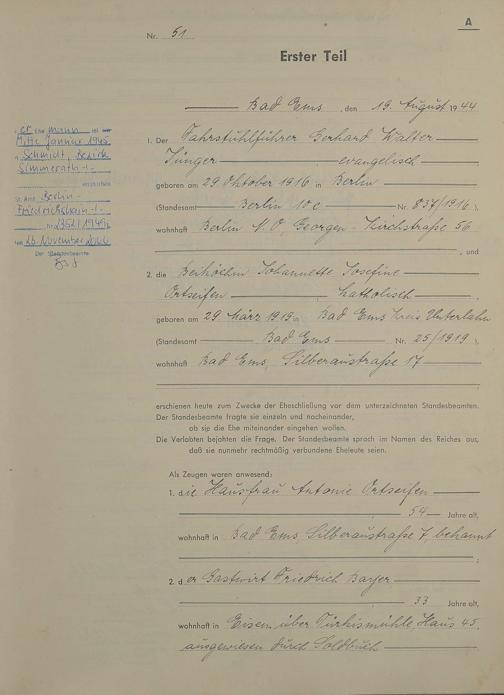 A
Nr. 51
Erster Teil
Bad Ems, den 19. August 1944
1. Der Fahrstuhlführer Gerhard Walter
Jünger evangelisch
geboren am 29 Oktober 1916 in Berlin
(Standesamt Berlin 10c Nr. 837/1916),
wohnhaft Berlin N.O., Georgen-Kirchstraße 56
, und
2. die Beiköchin Johannette Josefine
Ortseifen katholisch
geboren am 29 März 1919 in Bad Ems Kreis Unterlahn
(Standesamt Bad Ems Nr. 25/1919),
wohnhaft Bad Ems, Silberaustraße 17
erschienen heute zum Zwecke der Eheschließung vor dem unterzeichneten Standesbeamten.
Der Standesbeamte fragte sie einzeln und nacheinander,
ob sie die Ehe miteinander eingehen wollen.
Die Verlobten bejahten die Frage. Der Standesbeamte sprach im Namen des Reiches aus,
daß sie nunmehr rechtmäßig verbundene Eheleute seien.
Als Zeugen waren anwesend:
1. die Hausfrau Antonie Ortseifen
54 Jahre alt,
wohnhaft in Bad Ems, Silberaustraße 7, bekannt
2. der Gastwirt Friedrich Bayer
33 Jahre alt,
wohnhaft in Eisen über Türkismühle, Haus 45,
ausgewiesen durch Soldbuch
Ehemann ist
Mitte Januar 1945
in Schmidt, Bezirk
Simmerath
verstorben
St. Amt Berlin-
Friedrichshain
Der Standesbeamte